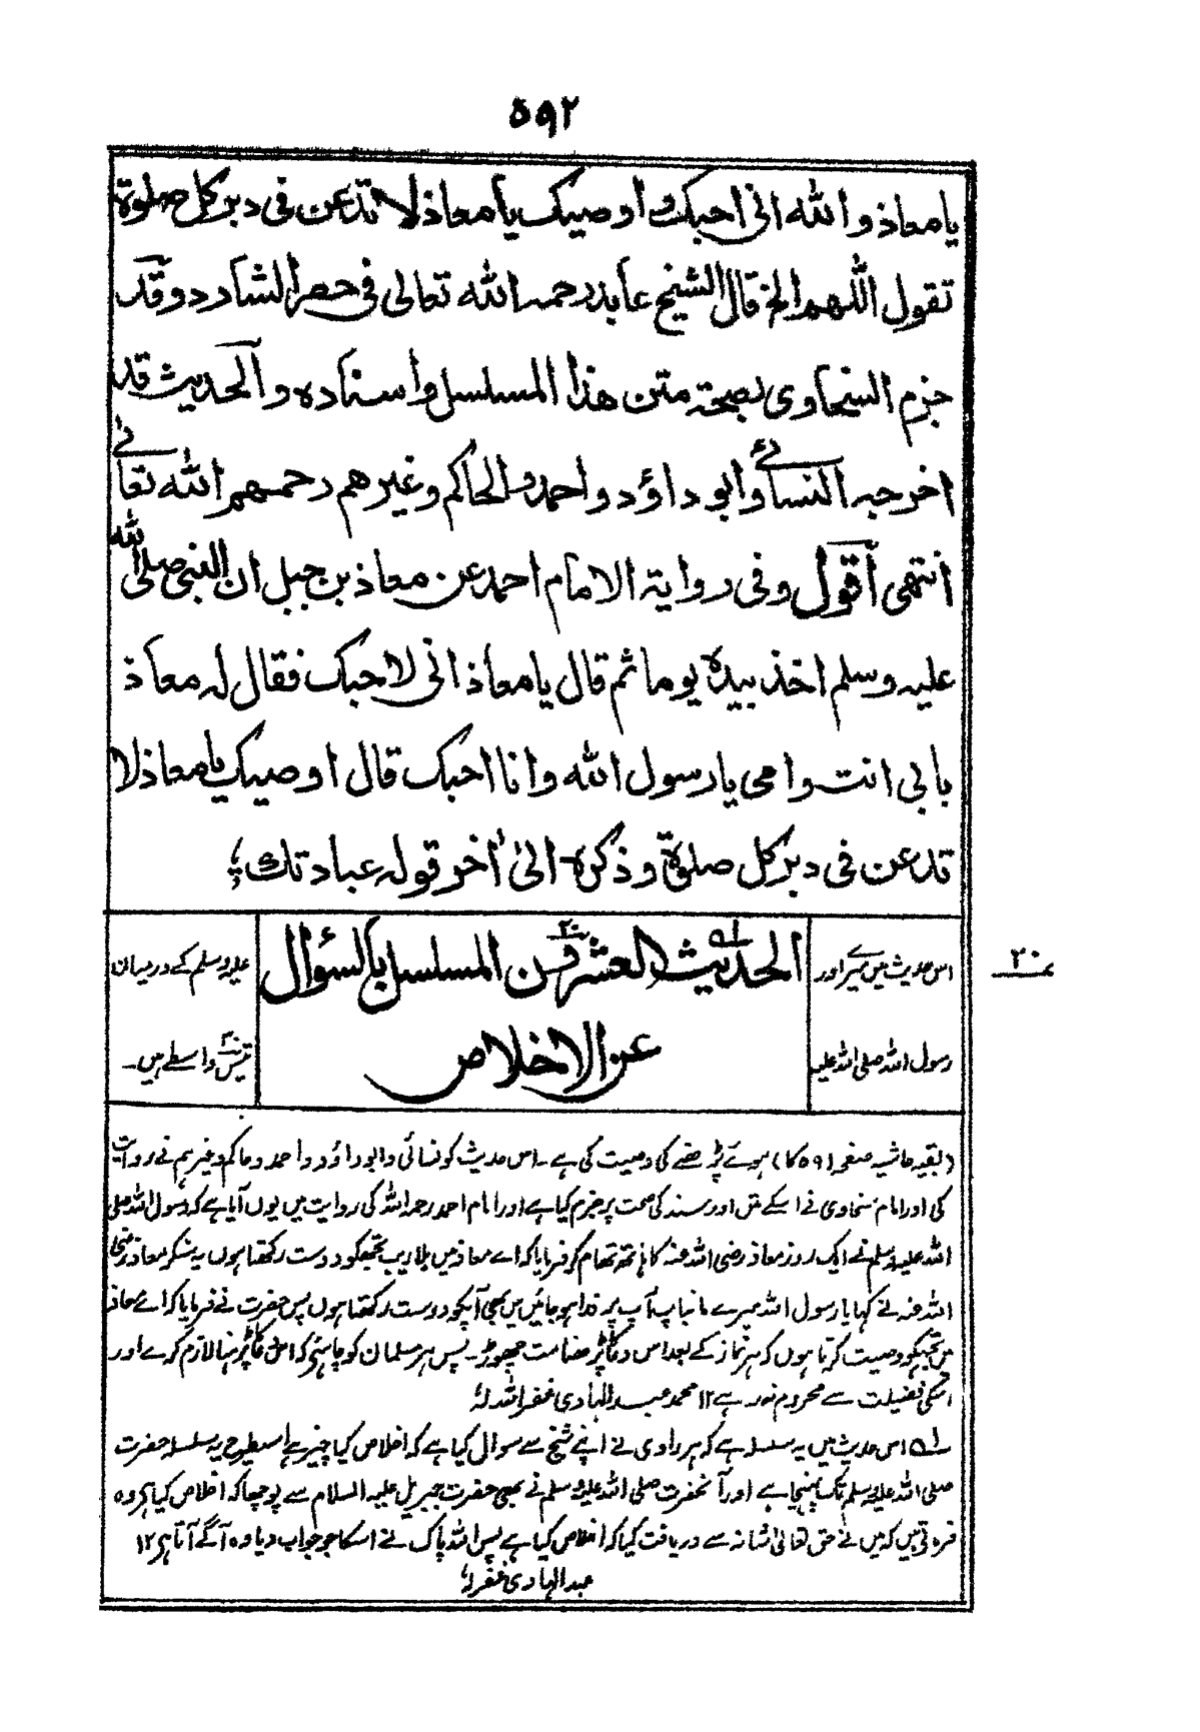 ۵۹۲
يا معاذ والله انى احبك و اوصيك يا معاذ لا تدعن فى دبر كل صلوة
تقول اللهم الخ قال الشيخ عابد رحمه الله تعالى فى حصر الشادر و قد
جزم السخاوى بصحة متن هذا المسلسل و اسناده و الحديث قد
اخرجه النسائى و ابو داؤد و احمد و الحاكم و غيرهم رحمهم الله تعالى
انتهى اقول و فى رواية الامام احمد عن معاذ بن جبل ان النبى صلى الله
عليه وسلم اخذ بيده يوما ثم قال يا معاذ انى لاحبك فقال له معاذ
بابى انت و امى يا رسول الله و انا احبك قال اوصيك يا معاذ لا
تدعن فى دبر كل صلوة و ذكره الىٰ اٰخر قوله عبادتك
۲۰
الحديث العشرون المسلسل بالسؤال
عن الاخلاص
اس حدیث میں میرے اور
رسول اللہ صلی اللہ علیہ
علیہ وسلم کے درمیان
تیس واسطے ہیں۔
(بقیہ حاشیہ صفحہ ۵۹۱ کا) ہوئے پڑھنے کی وصیت کی ہے۔ اس حدیث کو نسائی و ابو داؤد و احمد و حاکم و غیرہم نے روایت
کی اور امام سخاوی نے اسکے متن اور سند کی صحت پر جزم کیا ہے اور امام احمد رحمہ اللہ کی روایت میں یوں آیا ہے کہ رسول اللہ صلی
اللہ علیہ وسلم نے ایک روز معاذ رضی اللہ عنہ کا ہاتھ تھام کر فرمایا کہ اے معاذ میں بلا ریب تجھکو دوست رکھتا ہوں یہ سنکر معاذ رضی
اللہ عنہ نے کہا یا رسول اللہ میرے ما نباپ آپ پر فدا ہو جائیں میں بھی آپکو دوست رکھتا ہوں پس حضرت نے فرمایا کہ اے معاذ
میں تجھکو وصیت کرتا ہوں کہ ہر نماز کے بعد اس دعا کا پڑھنا مت چھوڑ۔ پس ہر مسلمان کو چاہئے کہ اس کا پڑھنا لازم کرے اور
اسکی فضیلت سے محروم نہ رہے ۱۲ محمد عبد الہادی غفر اللہ لہٗ
لہ اس حدیث میں یہ سلسلہ ہے کہ ہر راوی نے اپنے شیخ سے سوال کیا ہے کہ اخلاص کیا چیز ہے اسیطرح یہ سلسلہ حضرت
صلی اللہ علیہ وسلم تک پہنچا ہے اور آنحضرت صلی اللہ علیہ وسلم نے بھی حضرت جبریل علیہ السلام سے پوچھا کہ اخلاص کیا ہے وہ
فرماتے ہیں کہ میں نے حق تعالیٰ شانہ سے دریافت کیا کہ اخلاص کیا ہے پس اللہ پاک نے اسکا جو جواب دیا وہ آگے آتا ہے ۱۲
عبد الہادی غفر لہٗ